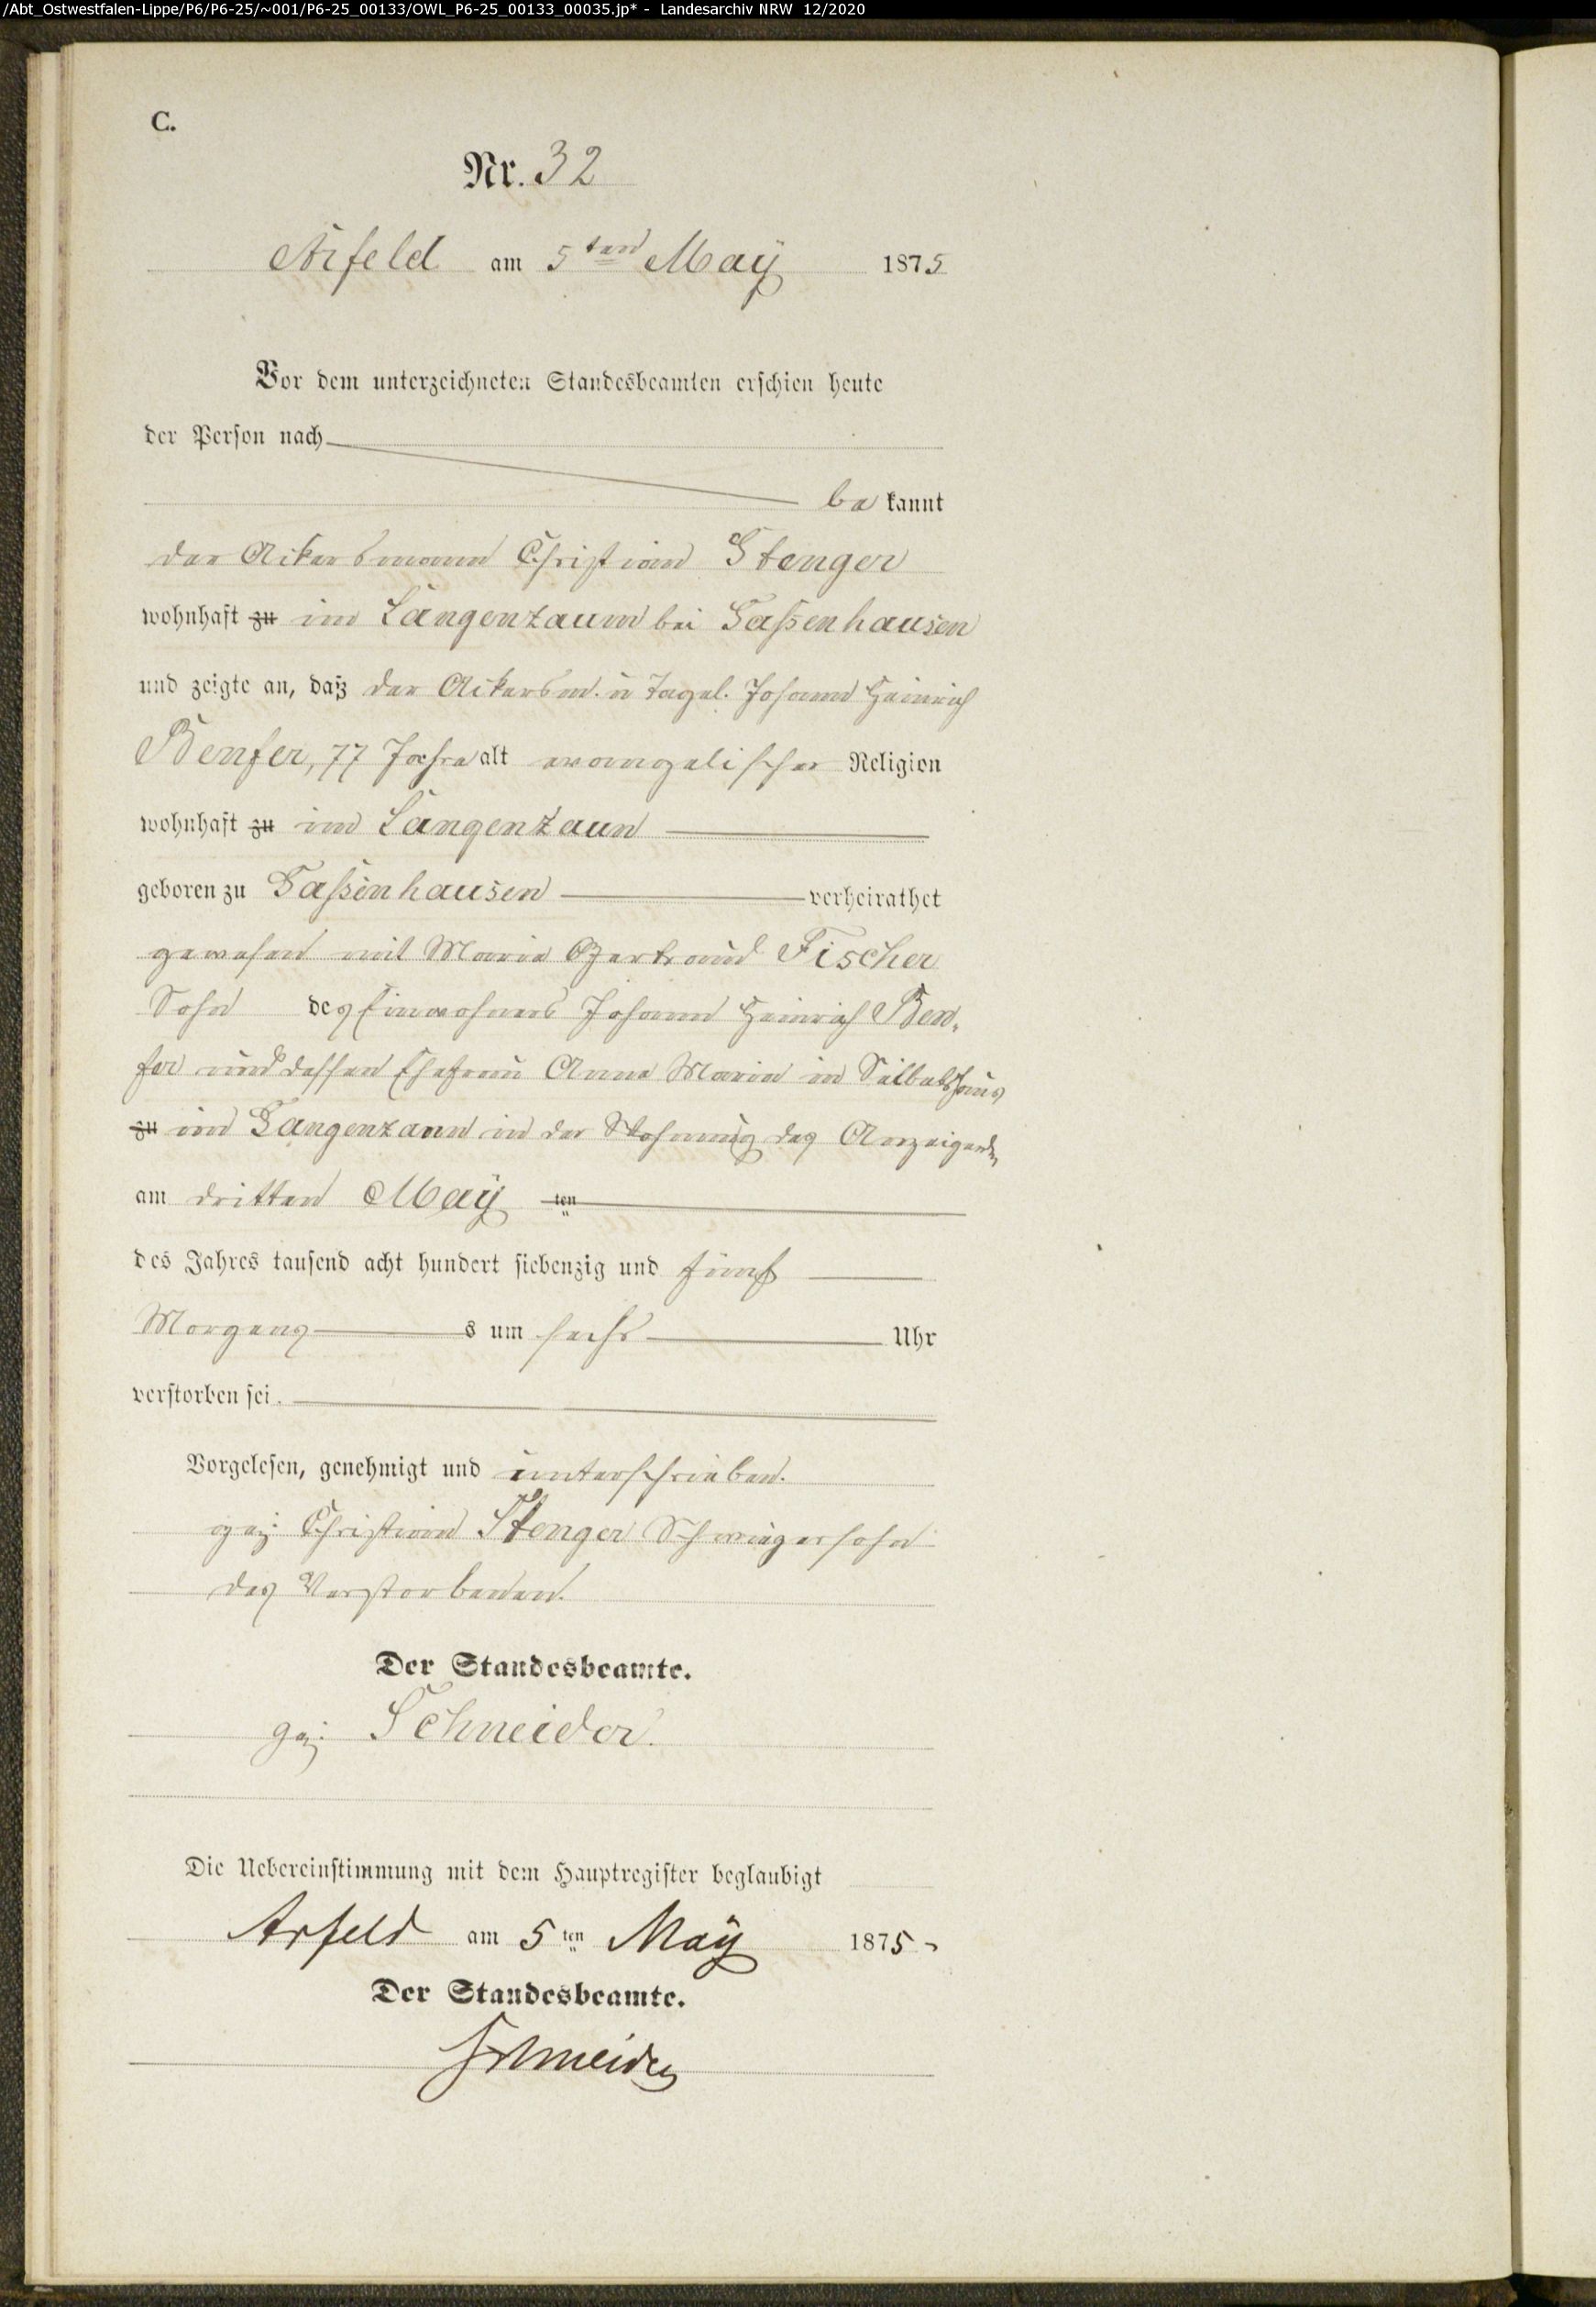 /Abt_Ostwestfalen-Lippe/P6/P6-25/~001/P6-25_00133/OWL_P6-25_00133_00035.jp* - Landesarchiv NRW 12/2020
C.
Nr. 32
Arfeld am 5ten Maÿ 1875
Vor dem unterzeichneten Standesbeamten erschien heute
der Person nach
be kannt
der Ackersmann Christian Stenger
wohnhaft zu im Langenzaun bei Sassenhausen
und zeigte an, daß der Ackersm. u Tagel. Johann Heinrich
Benfer, 77 Jahre alt evangelischer Religion
wohnhaft zu im Langenzaun
geboren zu Sassenhausen verheirathet
gewesen mit Maria Gertraud Fischer
Sohn des Einwohners Johann Heinrich Ben,
fer und dessen Ehefrau Anna Maria in
zu im Langenzaun in der Wohnung des Anzeigenden
am dritten Maÿ ten
des Jahres tausend acht hundert siebenzig und fünf
Morgens s um sechs Uhr
verstorben sei.
Vorgelesen, genehmigt und unterschrieben.
gez: Christian Stenger Schwiegersohn
des Verstorbenen.
Der Standesbeamte.
gez: Schneider.
Die Uebereinstimmung mit dem Hauptregister beglaubigt
Arfeld am 5 ten Maÿ 1875
Der Standesbeamte.
Schneider